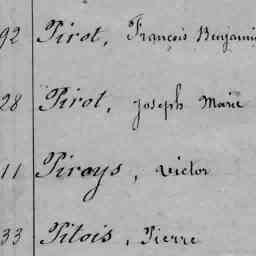 92 Pirot, François Benjamin
28 Pirot, Joseph Marie
11 Piroys, Victor
33 Pitois, Pierre